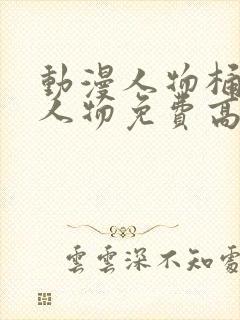 動漫人物桶
人物免費高
雲雲深不知處